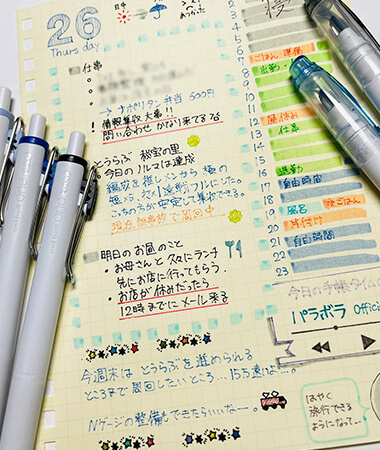 26
Thursday
日中
仕事
→ ナポリタン弁当 500円
! 情報集収大事!!
問い合わせ かなり来てるな
とうらぶ 秘宝の里
今日のノルマは達成
編成を推しメンから 極の
短刀、打刀、遠戦フルにした。
こっちの方が安定して集めできる。
現在 無事故で周回中
明日のお昼のこと
・お母さんとパスタにランチ
先にお店に行ってもらう。
・お店が休みだったら
12時までにメール来る
今週末は とうらぶを進められる
ところまで周回したいところ…15万遠いよ…。
Nゲージの整備もできたらいいなー。
2
3
4
5
6 ごはん、準備
7 出勤
8
9
10
11
12 昼休み
13 仕事
14
15
16 退勤
17 自由時間
18
19 風呂 夜ごはん
20 片付け
21 自由時間
22
23
今日の手帳タイムの
パラボラ Offici
はやく
旅行できる
ようになって…